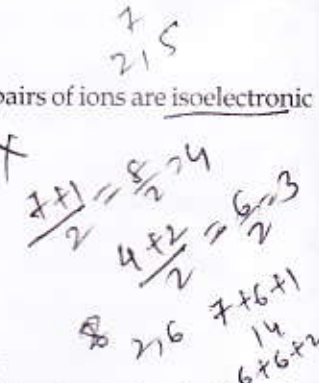 7
2, 5
pairs of ions are isoelectronic
X
7+1/2 = 8/2 = 4
4+2/2 = 6/2 = 3
8 2,6 7+6+1
14
6+6+2